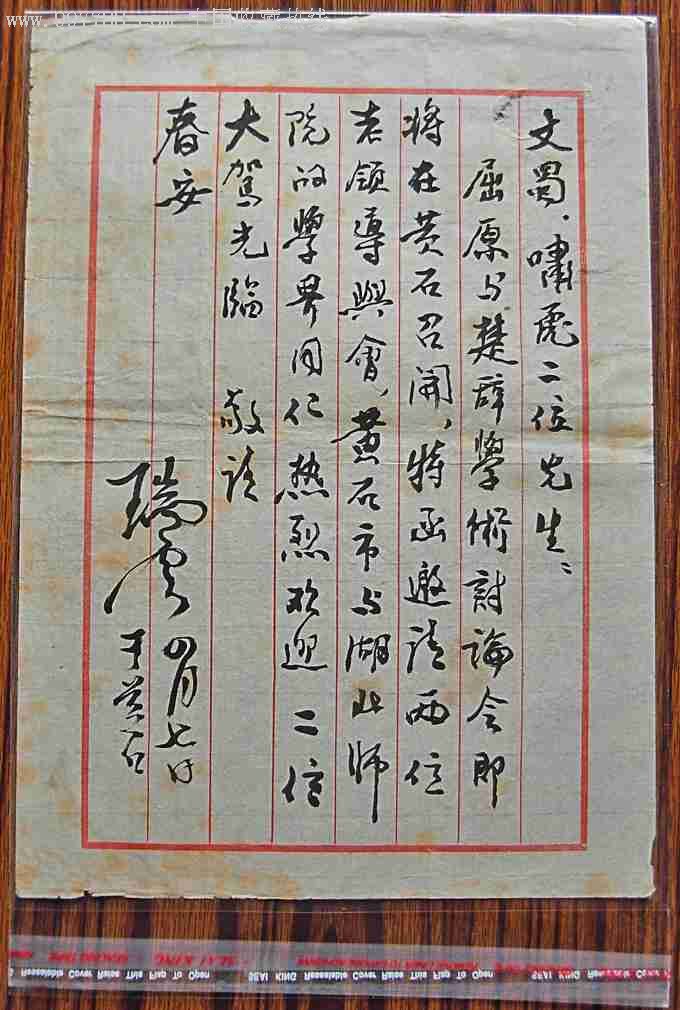 文蜀、啸虎二位先生：
屈原与楚辞學術討論会即
将在黄石召開，特函邀请两位
老领導與會，黄石市与湖北师
院的學界同仁热烈欢迎 二位
大駕光臨 敬请
春安
瑞雲 四月七日
于黄石
SEAL KING Resealable Cover Raise This Flap To Open